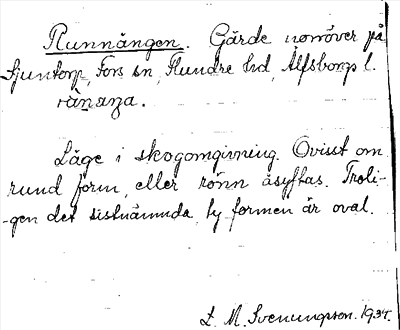 Runnängen. Gärde norröver på
Sjuntorp, Fors sn, Flundre hd, Älfsborgs l.
Läge i skogomgivning. Ovisst om
rund form eller rönn åsyftas. Troli-
-gen det sistnämnda, ty formen är oval.
L. M. Svenungsson. 1934.